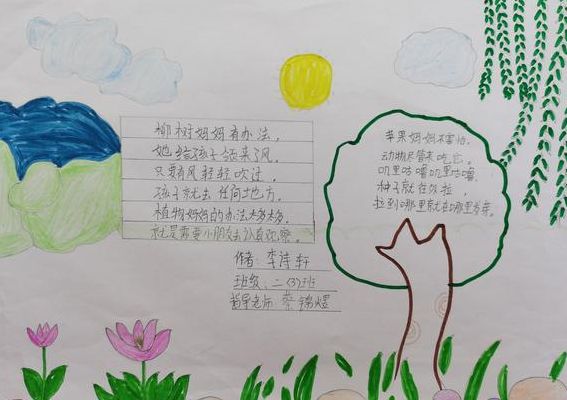 柳树妈妈有办法，
她给孩子领来了风，
只要有风轻轻吹过，
孩子就去任何地方。
植物妈妈的办法多多，
就是需要小朋友认真观察。
作者：李诗轩
班级：二（3）班
指导老师：蔡锦煜
苹果妈妈不害怕，
动物尽管来吃它，
叽里咕噜叽里咕噜，
种子就在便拉，
拉到哪里就在哪里发芽。